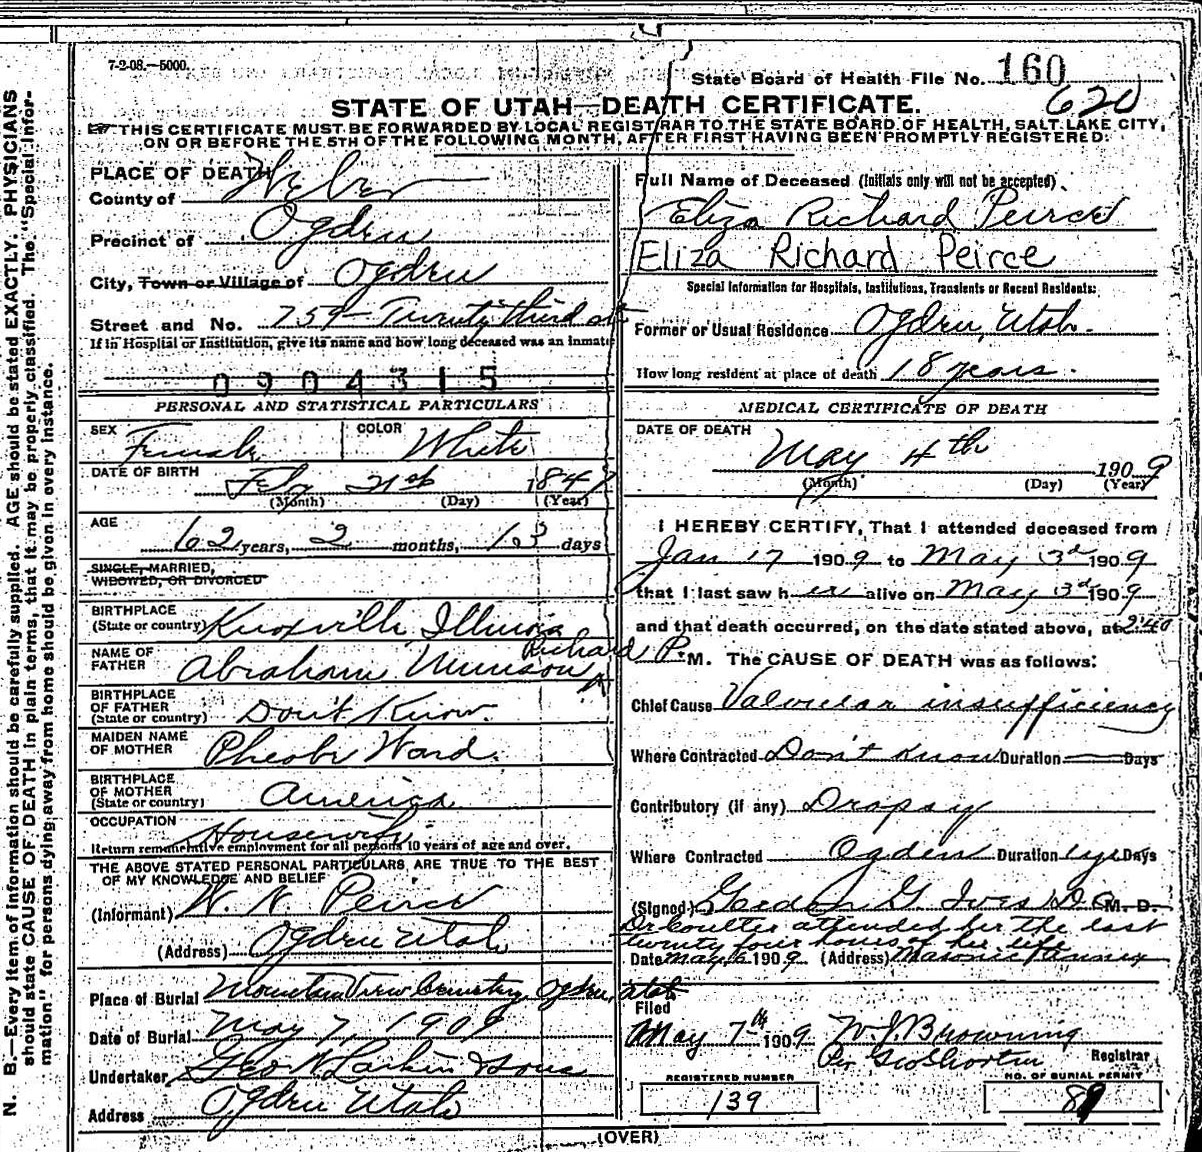 7-2-08.—5000.
State Board of Health File No. 160
620
STATE OF UTAH—DEATH CERTIFICATE.
THIS CERTIFICATE MUST BE FORWARDED BY LOCAL REGISTRAR TO THE STATE BOARD OF HEALTH, SALT LAKE CITY,
ON OR BEFORE THE 5TH OF THE FOLLOWING MONTH, AFTER FIRST HAVING BEEN PROMPTLY REGISTERED:
PLACE OF DEATH
County of Weber
Precinct of Ogden
City, Town or Village of Ogden
Street and No. 759 Twenty third st
If in Hospital or Institution, give its name and how long deceased was an inmate
0904315
PERSONAL AND STATISTICAL PARTICULARS
SEX Female COLOR White
DATE OF BIRTH Feby 21st 1847
(Month) (Day) (Year)
AGE
62 years, 2 months, 13 days
SINGLE, MARRIED,
WIDOWED, OR DIVORCED
BIRTHPLACE
(State or country) Knoxville Illinois
NAME OF
FATHER Abraham Richard
BIRTHPLACE
OF FATHER
(State or country) Don't Know.
MAIDEN NAME
OF MOTHER Pheobe Ward.
BIRTHPLACE
OF MOTHER
(State or country) America
OCCUPATION Housewife
Return remunerative employment for all persons 10 years of age and over.
THE ABOVE STATED PERSONAL PARTICULARS ARE TRUE TO THE BEST
OF MY KNOWLEDGE AND BELIEF
(Informant) W. N. Peirce
(Address) Ogden Utah
Place of Burial Mountain View Cemetery Ogden, Utah
Date of Burial May 7, 1909
Undertaker Geo W Larkin & Sons
Address Ogden Utah
Full Name of Deceased (Initials only will not be accepted).
Eliza Richard Peirce
Eliza Richard Peirce
Special Information for Hospitals, Institutions, Transients or Recent Residents:
Former or Usual Residence Ogden, Utah.
How long resident at place of death 18 years.
MEDICAL CERTIFICATE OF DEATH
DATE OF DEATH
May 4th 1909
(Month) (Day) (Year)
I HEREBY CERTIFY, That I attended deceased from
Jan 17 1909 to May 3d 1909
that I last saw her alive on May 3d 1909
and that death occurred, on the date stated above, at 2:40
P. M. The CAUSE OF DEATH was as follows:
Chief Cause Valvular insufficiency
Where Contracted Don't know Duration Days
Contributory (if any) Dropsy
Where Contracted Ogden Duration 1 yr Days
(Signed) G. Ives D.O. M. D.
Dr Coulter attended her the last
twenty four hours of her life
Date May 6 1909 (Address) Masonic
Filed
May 7th 1909 W J Browning
Per Geo Shorten Registrar
REGISTERED NUMBER
139
NO. OF BURIAL PERMIT
89
(OVER)
N. B.—Every item of information should be carefully supplied. AGE should be stated EXACTLY. PHYSICIANS
should state CAUSE OF DEATH in plain terms, that it may be properly classified. The "Special Infor-
mation" for persons dying away from home should be given in every instance.